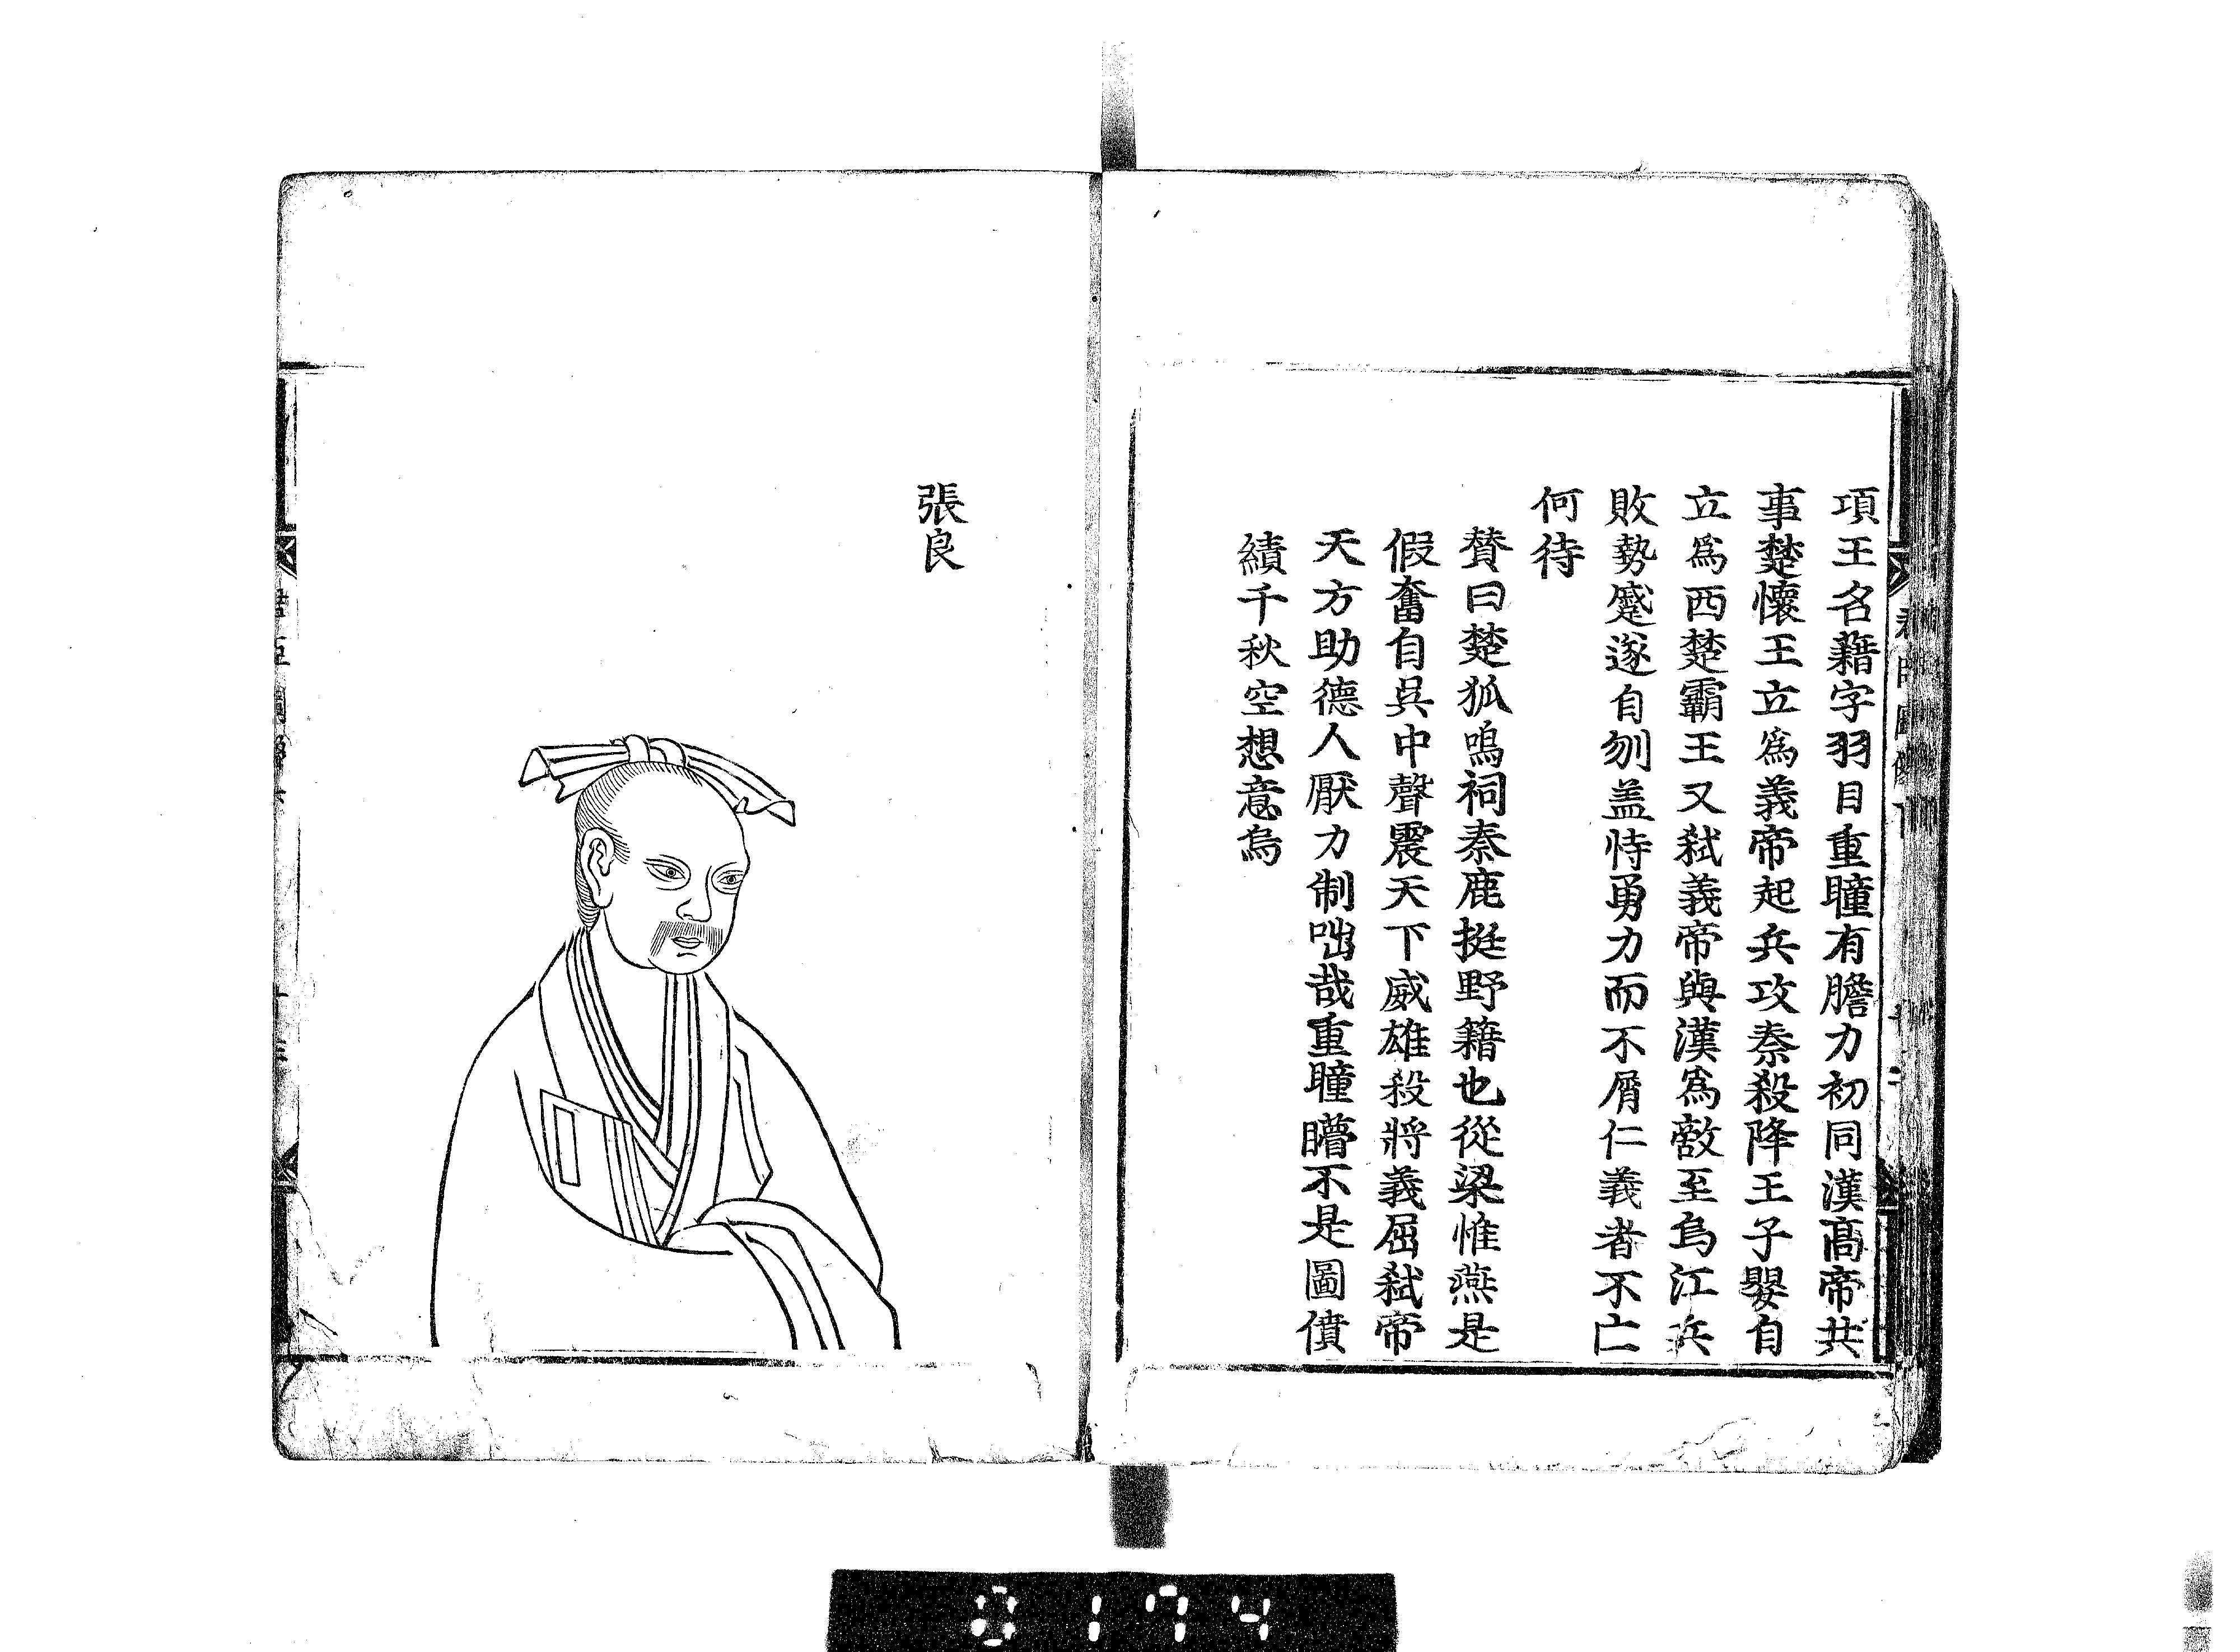 項王名藉字羽目重瞳有膽力初同漢髙帝共
事楚懷王立爲義帝起兵攻秦殺降王子嬰自
立爲西楚霸王又弑義帝與漢爲敵至烏江兵
敗勢蹙遂自刎盖恃勇力而不屑仁義者不亡
何待
賛曰楚狐嗚祠秦鹿挺野籍也從梁惟燕是
假奮自呉中聲震天下威雄殺將義屈弑帝
天方助德人厭力制咄哉重瞳瞢不是圖僨
績千秋空想意烏
張良
0174